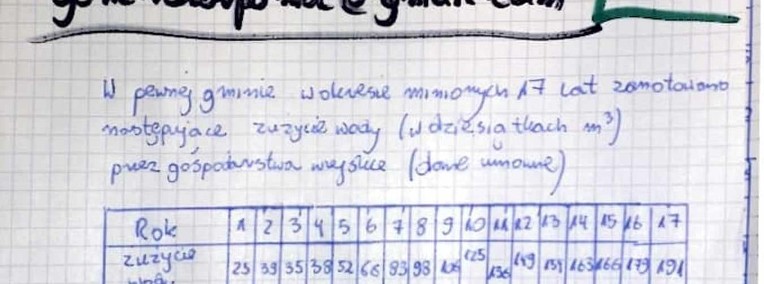 W pewnej gminie w okresie minionych 17 lat zanotowano
następujące zużycie wody (w dziesiątkach m³)
przez gospodarstwa wiejskie (dane umowne)
Rok 1 2 3 4 5 6 7 8 9 10 11 12 13 14 15 16 17
zużycie 25 39 35 38 52 66 83 98 106 125 136 149 151 163 166 179 191